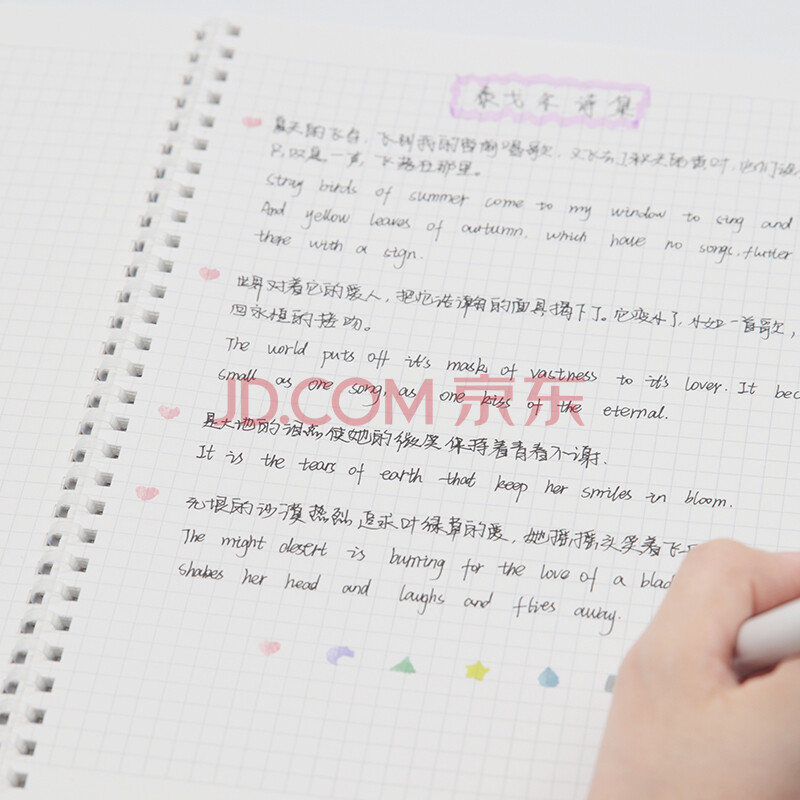 泰戈尔诗集
夏天的飞鸟，飞到我的窗前唱歌，又飞去了秋天的黄叶，它们没
只叹息一声，飞落在那里。
stray birds of summer come to my window to sing and
And yellow leaves of aurtumn, which have no songs, flutter
there with a sign.
世界对着它的爱人，把它浩瀚的面具揭下了。它变小了，小如一首歌，
回永恒的接吻。
The world puts off it's mask of vastness to it's lover. It bec
small as one song, as one kiss of the eternal.
JD.COM 京东
是大地的泪点使她的微笑保持着青春不谢.
It is the tears of earth that keep her smiles in bloom.
无垠的沙漠热烈追求叶绿草的爱，她摇摇头笑着飞
The might desert is burring for the love of a blad
shakes her head and laughs and flies away.